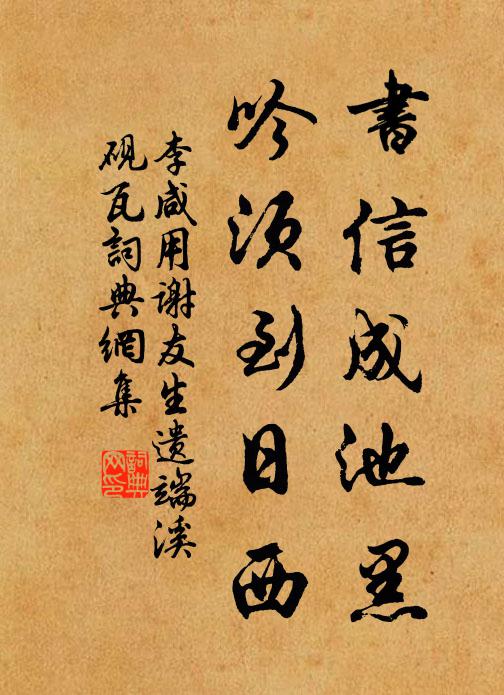 書信成池黑
吟須到日西
李咸用謝友生遺端溪
硯瓦詞典網集
詞典網印